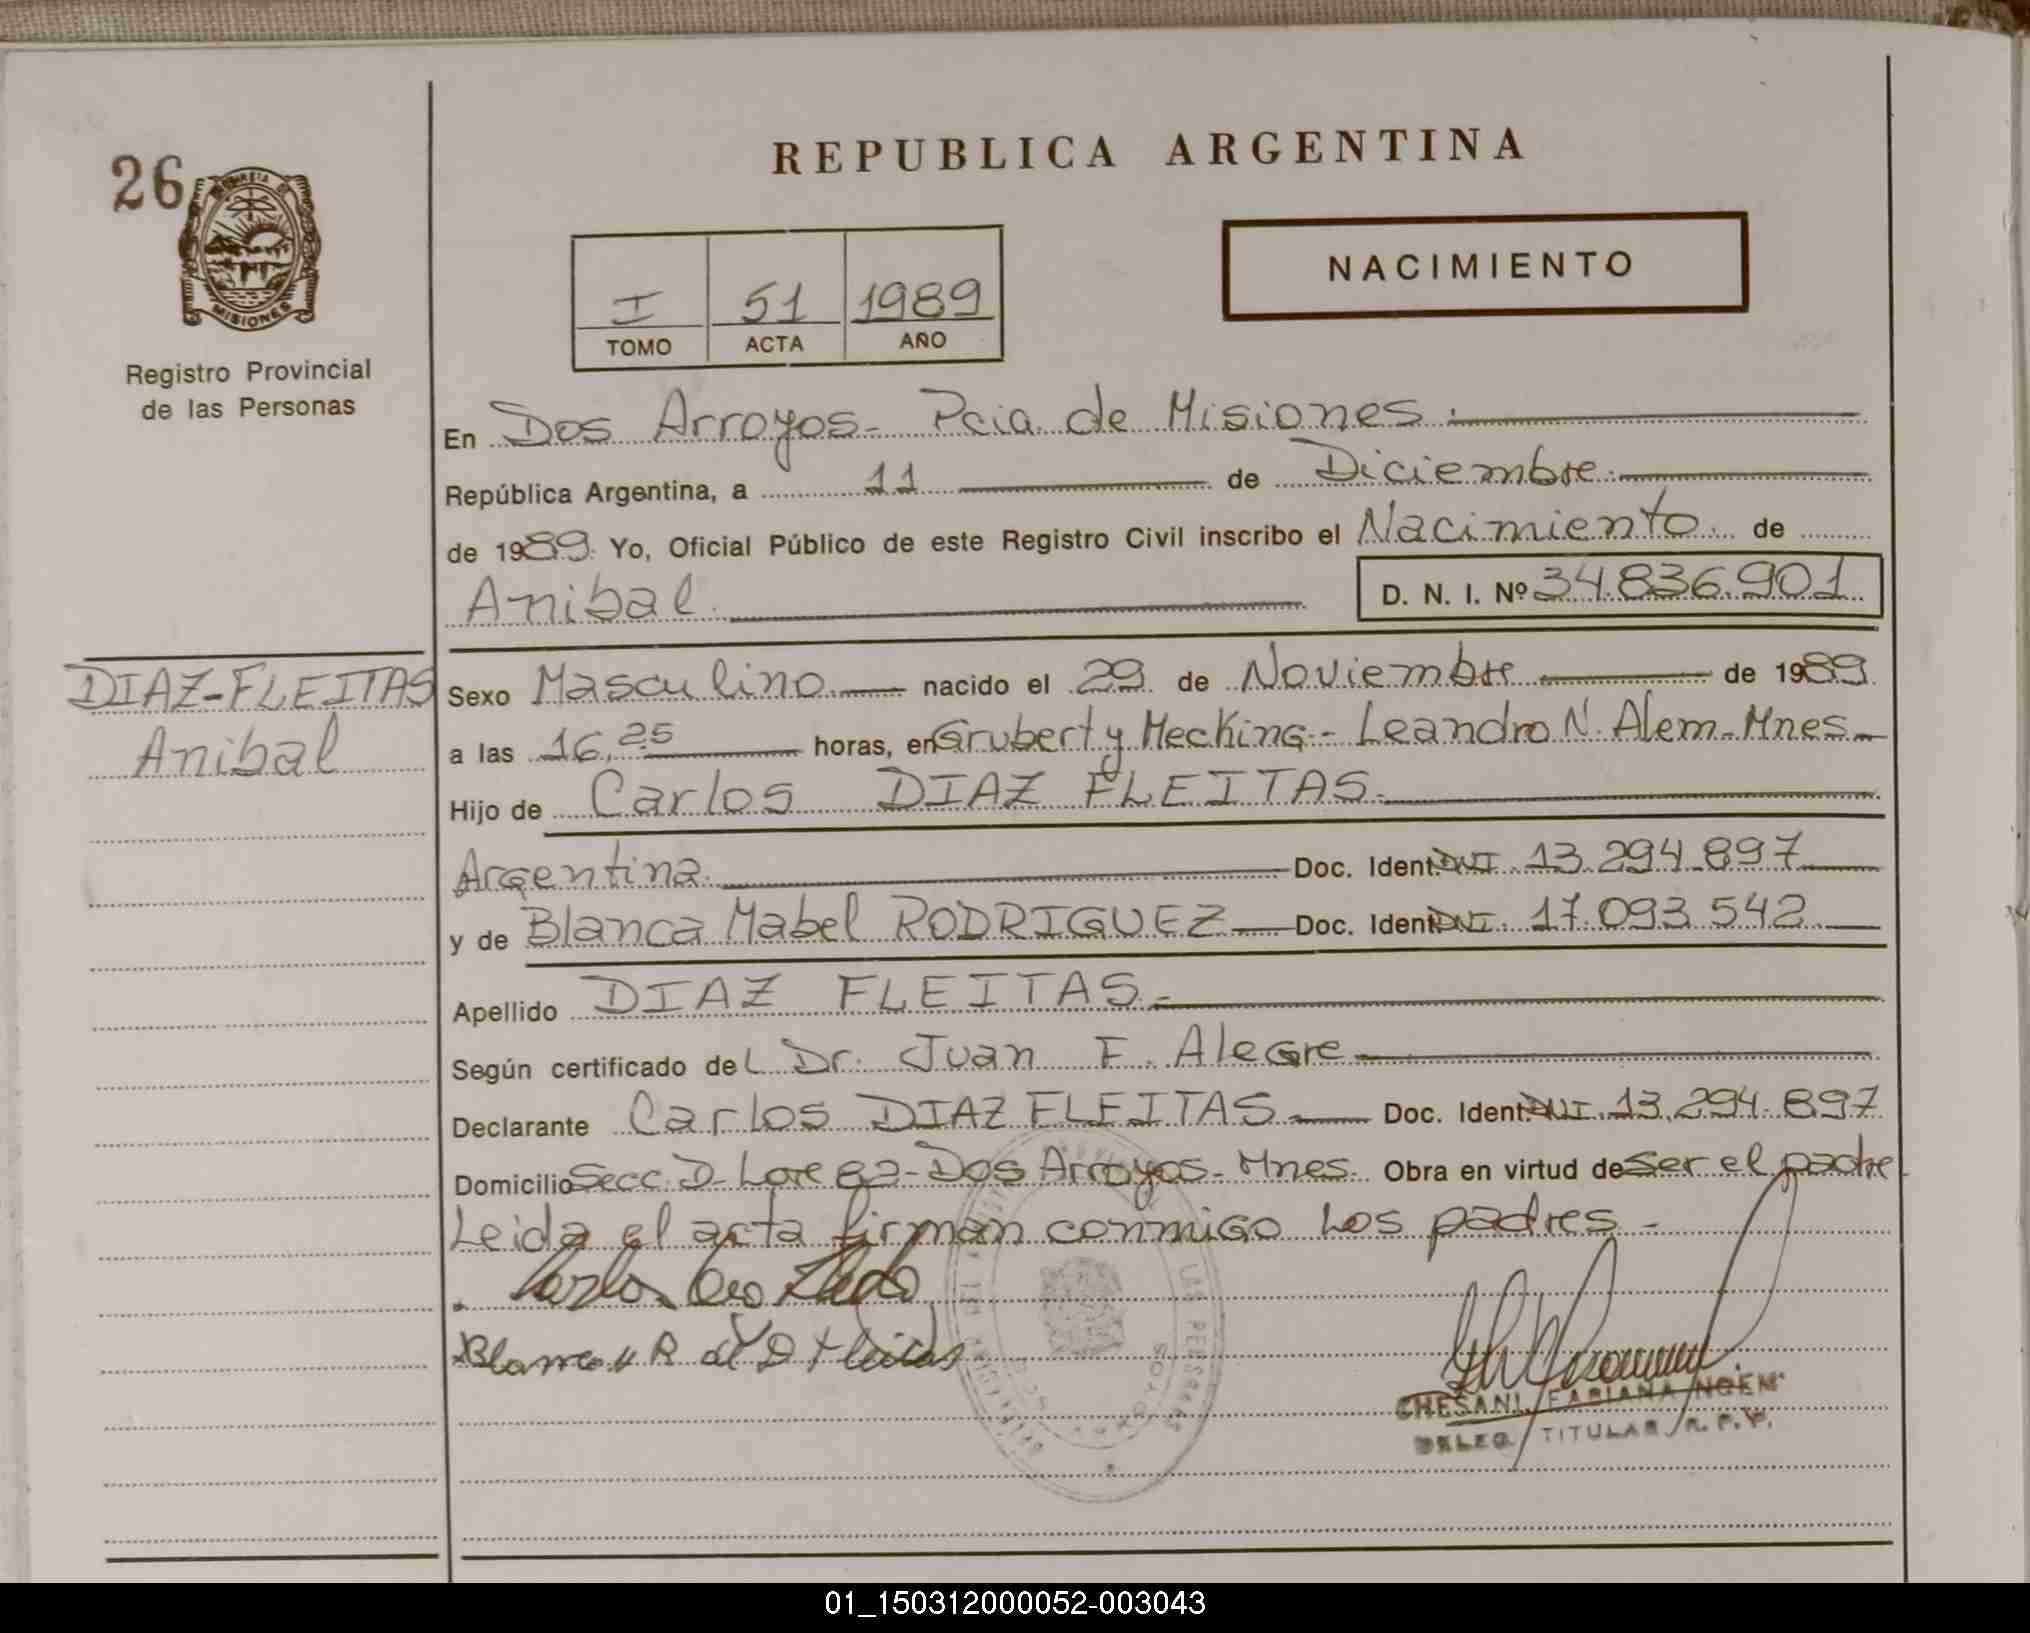 26
PROVINCIA DE
MISIONES
Registro Provincial
de las Personas
DIAZ-FLEITAS
Anibal
REPUBLICA ARGENTINA
I 51 1989
TOMO ACTA AÑO
NACIMIENTO
En Dos Arroyos- Pcia. de Misiones.
República Argentina, a 11 de Diciembre.
de 1989. Yo, Oficial Público de este Registro Civil inscribo el Nacimiento de
Anibal. D. N. I. Nº 34.836.901
Sexo Masculino nacido el 29 de Noviembre de 1989
a las 16,25 horas, en Grubert y Mecking- Leandro N. Alem-Mnes-
Hijo de Carlos DIAZ FLEITAS.
Argentina. Doc. Ident. DNI. 13.294.897
y de Blanca Mabel RODRIGUEZ Doc. Ident. DNI. 17.093.542
Apellido DIAZ FLEITAS.-
Según certificado del Dr. Juan E. Alegre
Declarante Carlos DIAZ FLEITAS Doc. Ident. DNI. 13.294.897
Domicilio Secc. D- Lote 82-Dos Arroyos- Mnes. Obra en virtud de ser el padre
Leida el acta firman conmigo Los padres.-
Carlos
Blanca R de D Fleitas
LAS PERSONAS
CHESANI, FABIANA NOEMI
DELEG. TITULAR R. P. P.
01_150312000052-003043